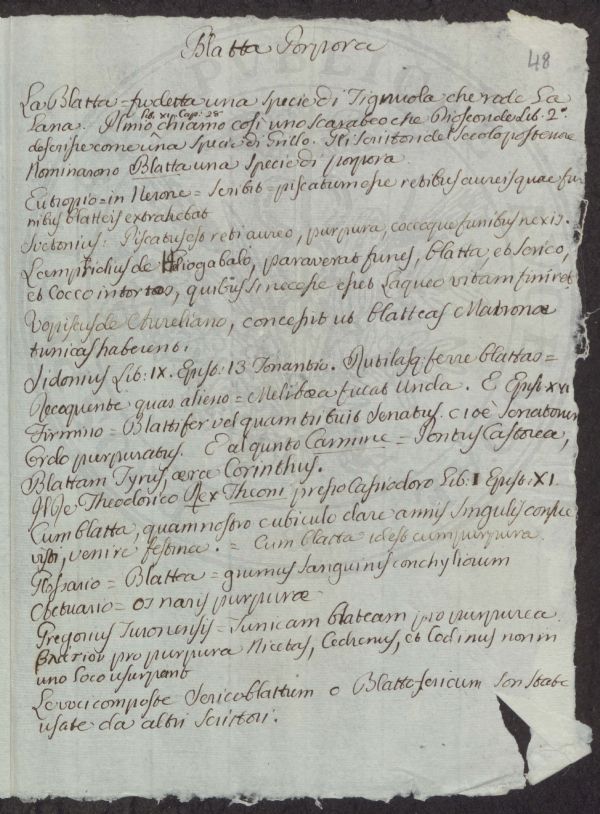 Blatta Porpora
48
La Blatta = fu detta una specie di Tignuola che rode La
Lana. Plinio, chiamo così uno scarabeo che Dioscoride Lib. 2º
Lib. XI. Cap. 28
descrisse come una specie di Grillo. Gli scrittori del secolo posteriore
Nominarono Blatta una specie di porpora.
Eutropio = in Nerone = scribit = piscatum esse retibus aureis quae fu
nibus blatteis extrahebat
Svetonius: Piscatus est reti aureo, purpura, coccoque funibus nexis.
Lampridius de Heliogabalo, paraverat funes, blatta, et serico,
et Cocco intortos, quibus si necesse esset Laqueo vitam finiret
Vopiscus de Aureliano, concessit ut blatteas Matronae
tunicas haberent.
Sidonius Lib: IX. Epist: 13 Tonantio. Rutilasq: ferre blattas =
Recoquente quas alieno = Meliboea fucat Unda. E Epist XVI
Firmino = Blattifer vel quam tribuit Senatus. cioè Senatorum
Ordo purpuratus. E al quinto Carmine = Pontus Castorea,
Blattam Tyrus, aera Corinthus.
Il Re Theodorico Rex Theoni presso Cassiodoro Lib: I Epist: XI.
Cum blatta, quam nostro cubiculo dare annis singulis consue
visti, venire festina. = Cum blatta idest cum purpura.
Glossario = Blattea = grumus sanguinis conchyliorum
Obetuario = os naris purpurae
Gregorius Turonensis = Tunicam blateam pro purpurea
pro purpura Nicetas, Cedrenus, et Codinus non in
uno Loco usurpant
Le voci composte Sericoblattum o Blattosericum son state
usate da altri scrittori.